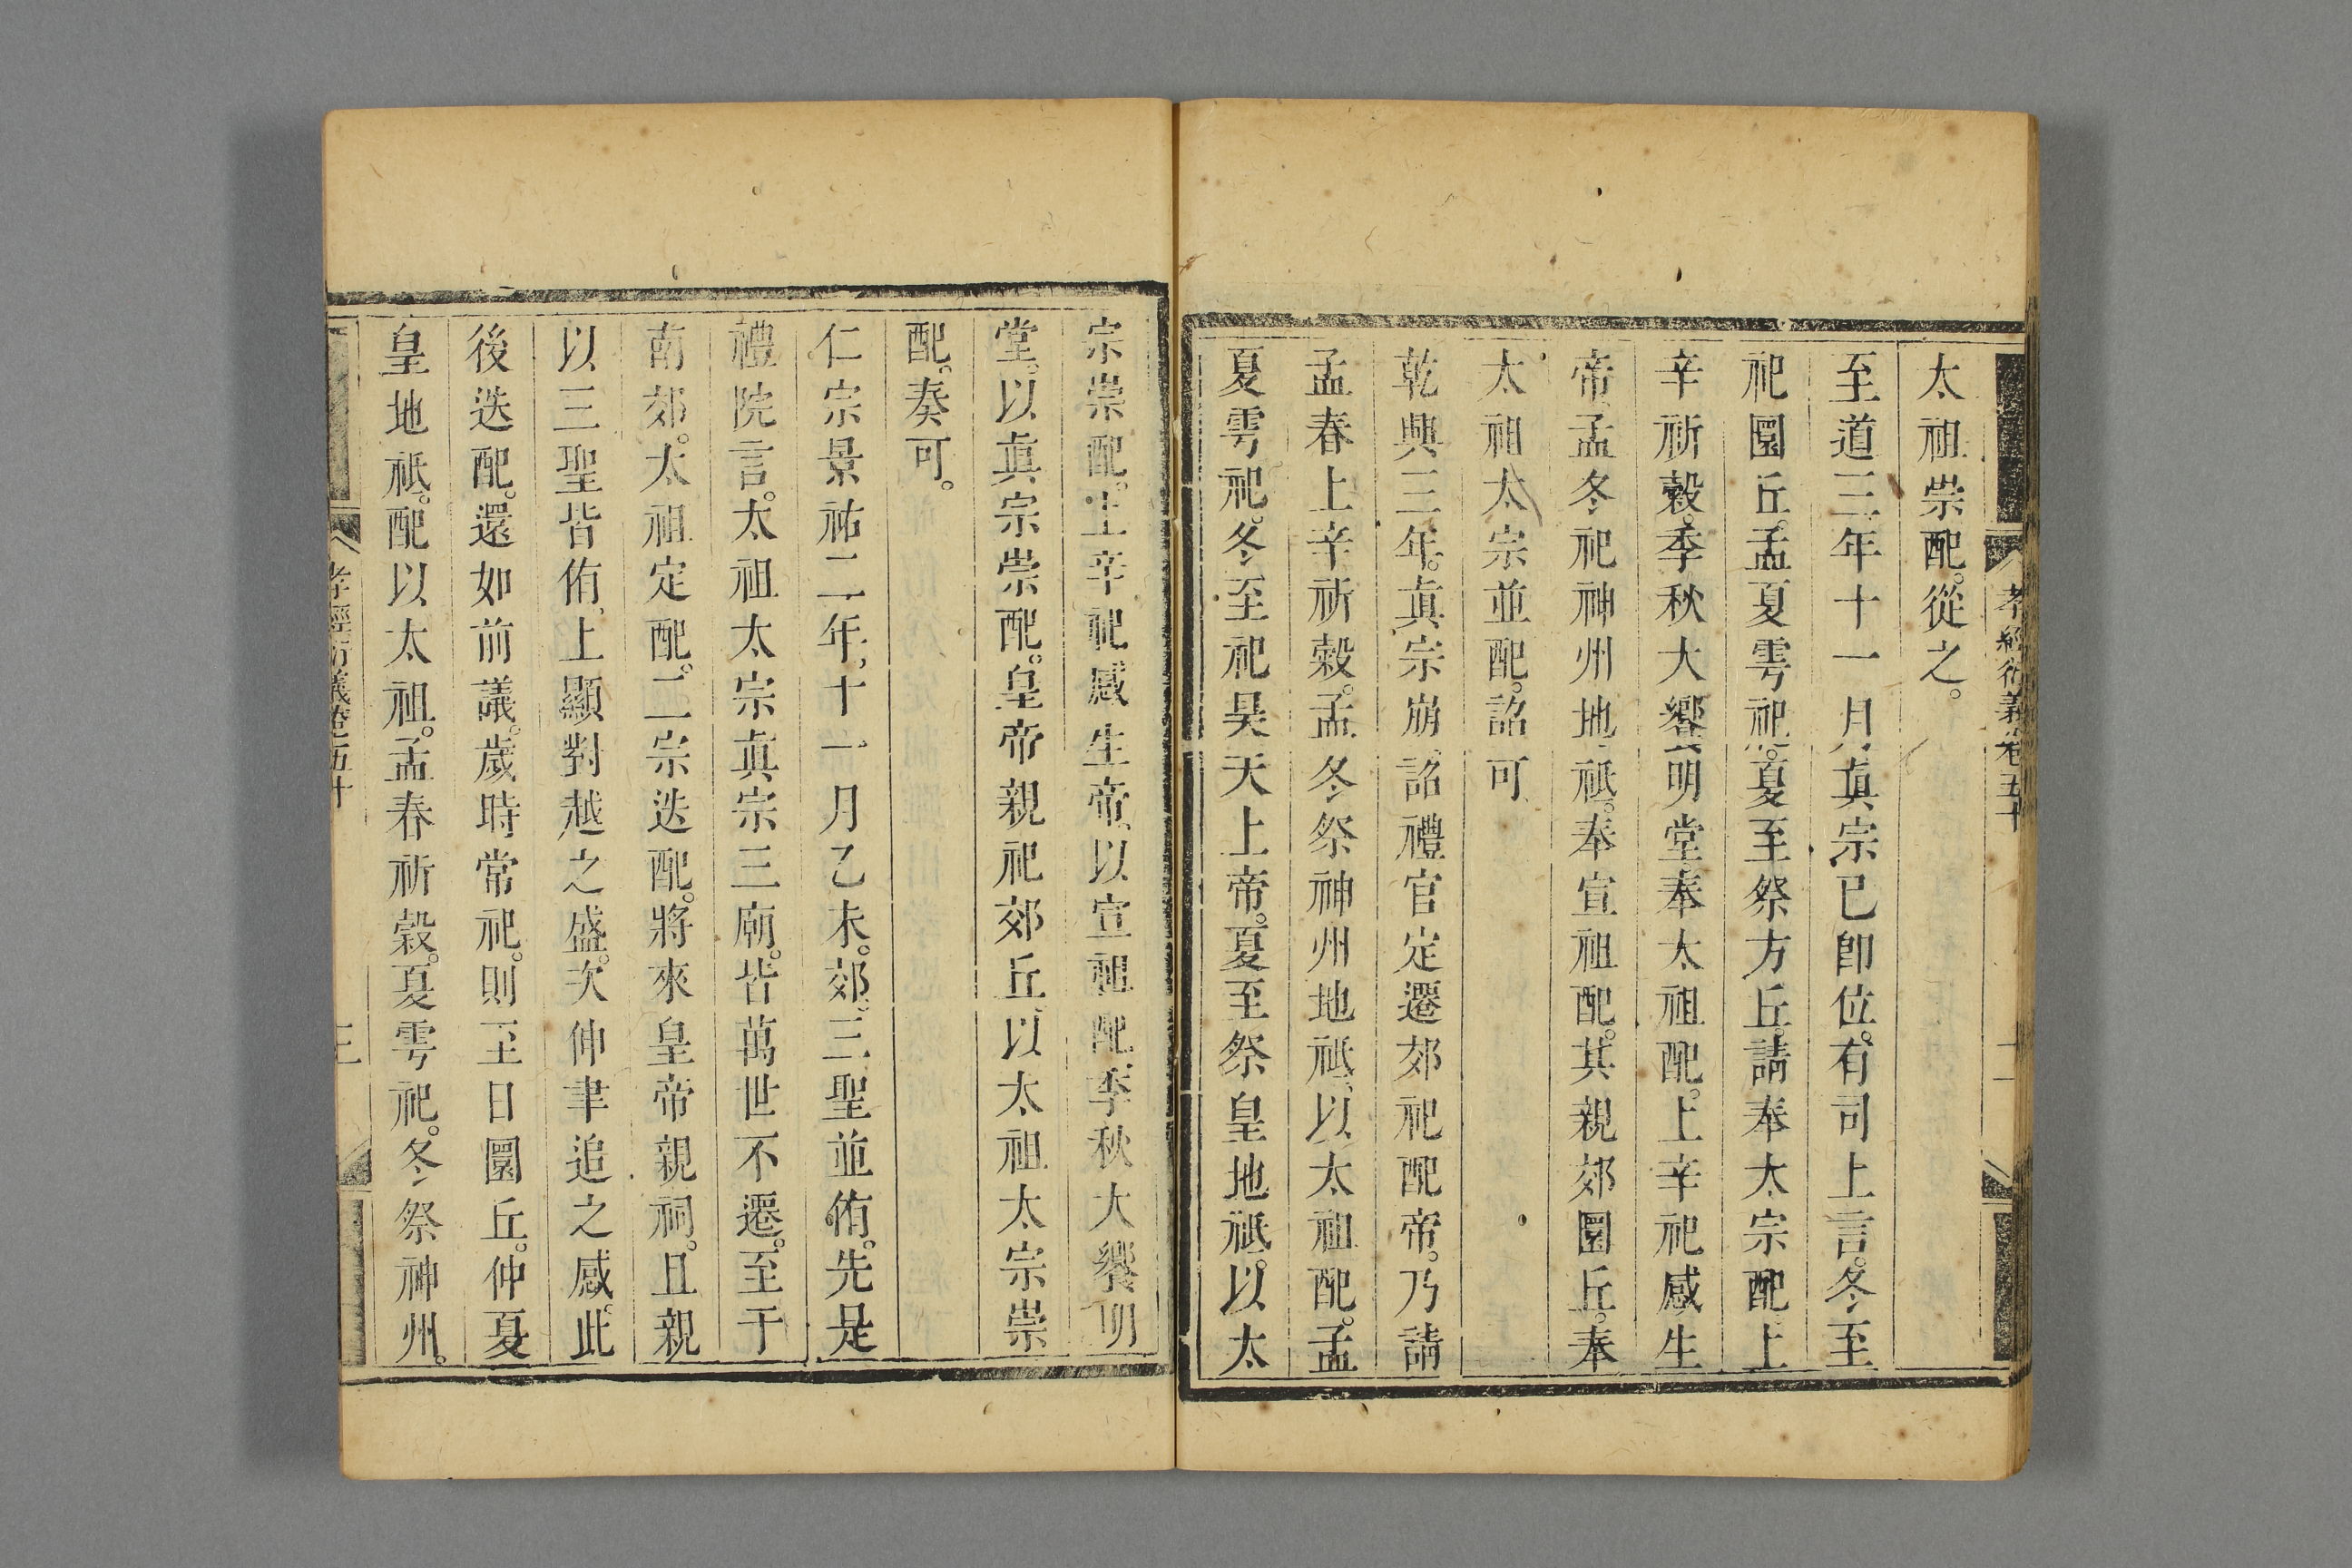 孝經衍義卷五十
太祖崇配。從之。
至道三年十一月眞宗已卽位。有司上言。冬至
祀圜丘。孟夏雩祀。夏至祭方丘。請奉太宗配。上
辛祈穀。季秋大饗明堂奉太祖配。上辛祀感生
帝、孟冬祀神州地祇。奉宣祖配。其親郊圜丘。奉
太祖太宗並配。詔可
乾興三年。眞宗崩、詔禮官定遷郊祀配帝。乃請
孟春上辛祈榖。孟冬祭神州地祇、以太祖配。孟
夏雩祀。冬至祀昊天上帝。夏至祭皇地祇。以太
宗崇配。上辛祀感生帝、以宣祖配、季秋大饗明
堂。以眞宗崇配。皇帝親祀郊丘、以太祖太宗崇
配。奏可。
仁宗景祐二年、十一月乙未。郊、三聖並侑。先是
禮院言。太祖太宗眞宗三廟。皆萬世不遷。至于
南郊。太祖定配。二宗迭配。將來皇帝親祠。且親
以三聖皆侑、上顯對越之盛。次伸聿追之感。此
後迭配。還如前議。歲時常祀。則至日圜丘。仲夏
皇地祇。配以太祖。孟春祈穀。夏雩祀。冬祭神州。
孝經衍義卷五十
三